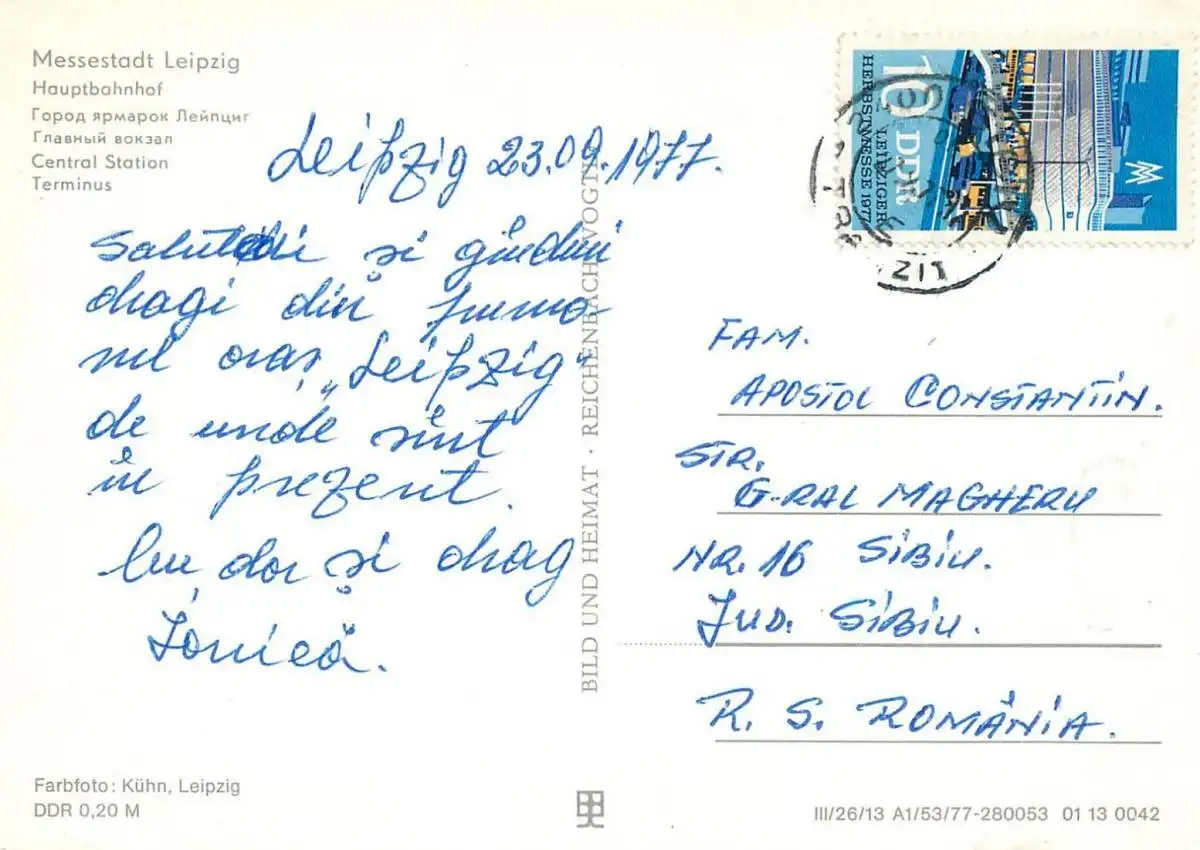 Messestadt Leipzig
Hauptbahnhof
Город ярмарок Лейпциг
Главный вокзал
Central Station
Terminus
10 DDR
LEIPZIGER
HERBSTMESSE 1977
Leipzig 23.09.1977.
Salutări și gînduri
dragi din frumo-
sul oraș „Leipzig”
de unde sînt
în prezent.
Cu dor și drag
Ionică.
BILD UND HEIMAT · REICHENBACH VOGTL
FAM.
APOSTOL CONSTANTIN.
STR.
G-RAL MAGHERU
NR. 16 SIBIU.
JUD. SIBIU.
R. S. ROMÂNIA.
Farbfoto: Kühn, Leipzig
DDR 0,20 M
III/26/13 A1/53/77-280053 01 13 0042